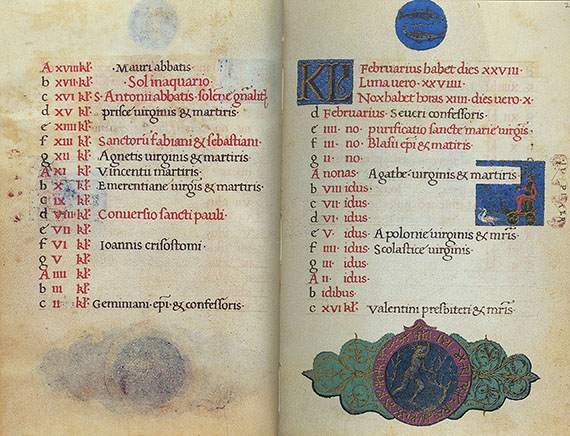 A xvii kl̃ Mauri abbatis·
b xvii kl̃ Sol in aquario·
c xvi kl̃ S· Antonii abbatis· solẽne gñaliṫ
d xv kl̃· prisce virginis & martiris·
e xiiii kl̃·
f xiii kl̃· Sanctorũ fabiani & sebastiani·
g xii kl̃· Agnetis virginis & martiris·
A xi kl̃· Vincentii martiris·
b x kl̃· Emerentiane virgĩs & martiris·
c ix kl̃·
d viii kl̃· Conversio sancti pauli·
e vii kl̃·
f vi kl̃· Ioannis crisostomi·
g v kl̃·
A iiii kl̃·
b iii kl̃·
c ii kl̃· Geminiani· epĩ· & confessoris·
2
KL Februarius habet dies xxviii·
Luna uero· xxviiii·
Nox habet horas xiiii· dies uero·x·
d Februarius· Seueri confessoris·
e iiii· no· purificatio sancte marie uirgĩs·
f iii· no· Blasii epĩ & matiris·
g ii· no·
A nonas· Agathe· uirginis & martiris·
b viii idus·
c vii· idus·
d vi· idus·
e v· idus· Apolonie uirginis & mr̃is·
f iiii· idus· Scolastice uirginis·
g iii· idus·
A ii· idus·
b idibus·
c xvi kl̃· Valentini presbiteri & mr̃is·